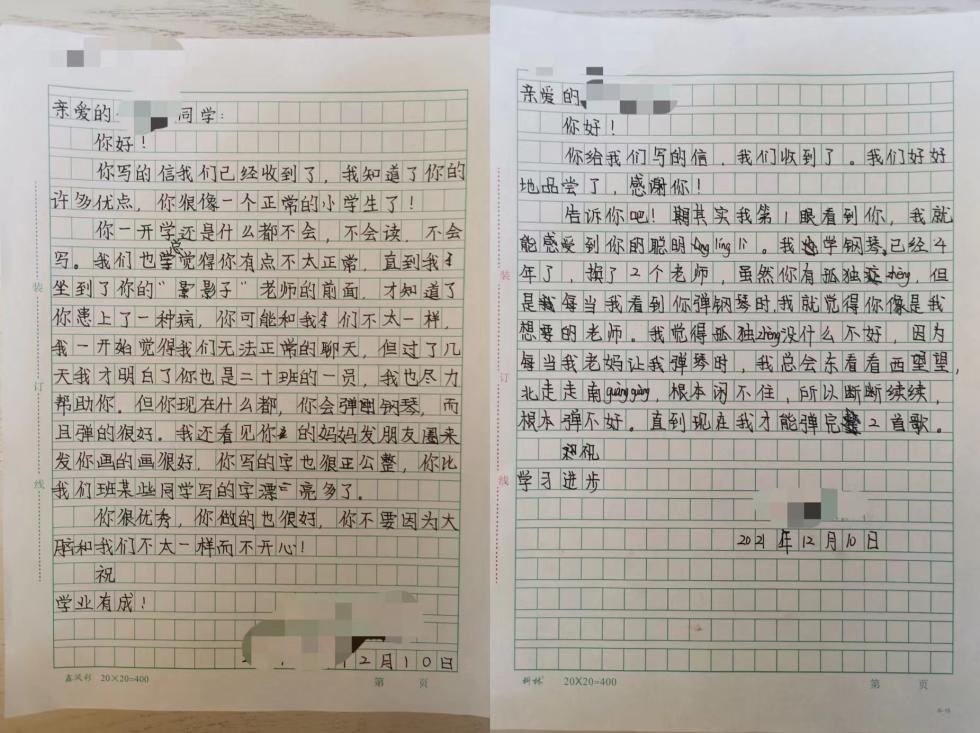 亲爱的 同学：
你好！
你写的信我们已经收到了，我知道了你的
许多优点，你很像一个正常的小学生了！
你一开学还是什么都不会，不会读，不会
写。我们也觉得你有点不太正常，直到我
坐到了你的“影子”老师的前面，才知道了
你患上了一种病，你可能和我们不太一样，
我一开始觉得我们无法正常的聊天，但过了几
天我才明白了你也是二十班的一员，我也尽力
帮助你。但你现在什么都，你会弹钢琴，而
且弹的很好。我还看见你的妈妈发朋友圈来
发你画的画很好，你写的字也很正公整，你比
我们班某些同学写的字漂亮多了。
你很优秀，你做的也很好，你不要因为大
脑和我们不太一样而不开心！
祝
学业有成！
12月10日
鑫凤彩 20×20=400 第 页
亲爱的
你好！
你给我们写的信，我们收到了。我们好好
地品尝了，感谢你！
告诉你吧！其实我第1眼看到你，我就
能感受到你的聪明líng lì。我学钢琴已经4
年了，换了2个老师，虽然你有孤独zhèng，但
是每当我看到你弹钢琴时，我就觉得你像是我
想要的老师。我觉得孤独zhèng没什么不好，因为
每当我老妈让我弹琴时，我总会东看看西望望，
北走走南guàngguàng，根本闲不住，所以断断续续，
根本弹不好。直到现在我才能弹完2首歌。
祝
学习进步
2021年12月10日
20×20=400 第 页
装
订
线
装
订
线